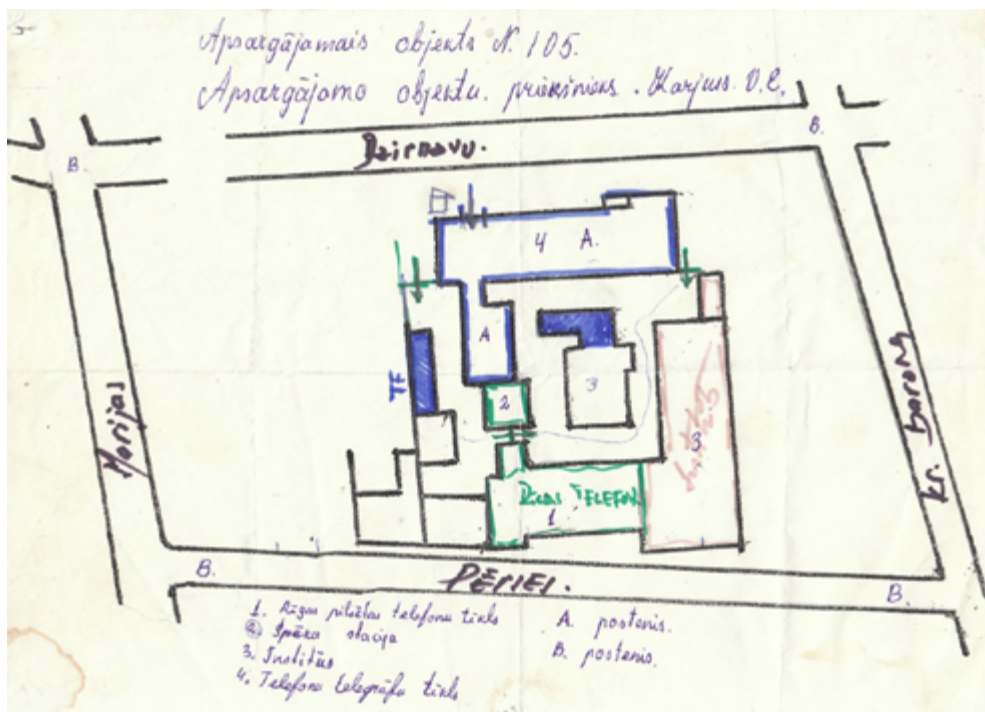 Apsargājamais objekts N. 105.
Apsargājamo objektu priekšnieks. Karjus. V. E.
B.
Dzirnavu.
B.
4 A.
A
TF
2
3
3
Marijas
kr. barona
RĪGAS TELEFON.
1
B.
PĒRLEI.
B.
1. Rīgas pilsētas telefonu tīkls
2. Spēka stacija
3. Institūs
4. Telefona telegrāfa tīkls
A. postenis.
B. postenis.